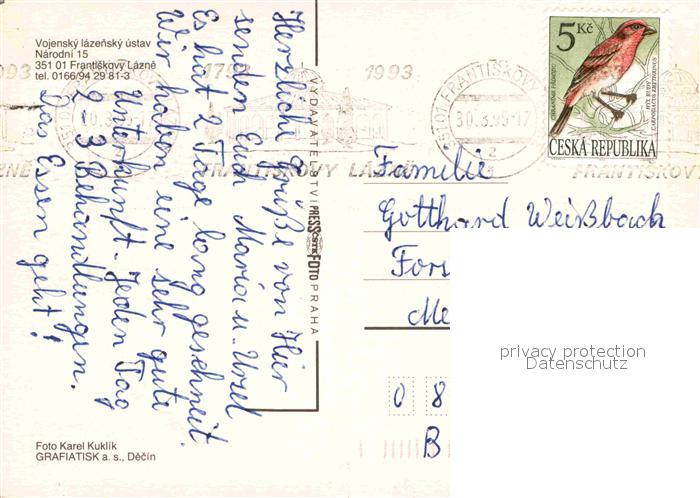 Vojenský lázeňský ústav
Národní 15
351 01 Františkovy Lázně
tel. 0166/94 29 81-3
Herzliche Grüße von Hier
senden Euch Maria u. Ursel
Es hat 2 Tage lang geschneit.
Wir haben eine sehr gute
Unterkunft. Jeden Tag
2-3 Behandlungen.
Das Essen geht!
Foto Karel Kuklík
GRAFIATISK a. s., Děčín
VYDAVATELSTVÍ PRESSFOTO PRAHA
1793
1993
FRANTIŠKOVY LÁZNĚ
30.3.95-17
5 Kč
HÝL RUDÝ
CARPODACUS ERYTHRINUS
ČESKÁ REPUBLIKA
Familie
Gotthard Weißbach
For
Me
0 8
B
privacy protection
Datenschutz